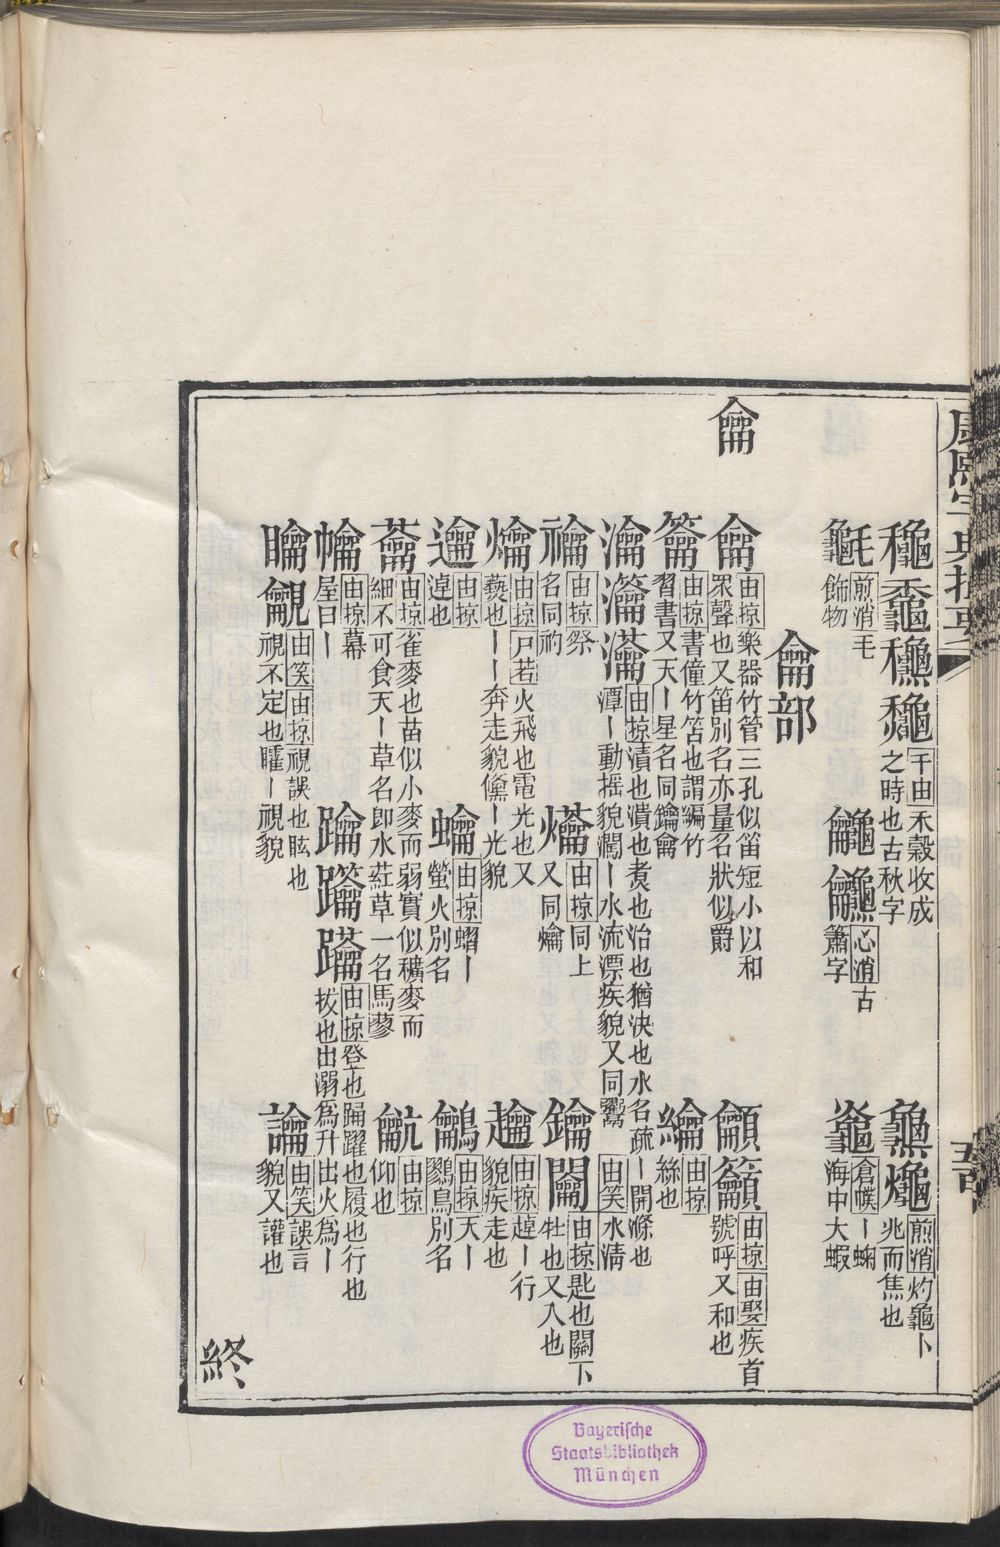 康熙字典撮要
龝𪚼龝龝 千由 禾穀收成之時也古秋字
龜毛 煎消 毛飾物
龠龜 龠龜 心消 古簫字
龜火 煎消 灼龜卜兆而焦也
倉幉 丨蜩海中大蝦
龠部
龠
龠 由掠 樂器竹管三孔似笛短小以和眾聲也又笛別名亦量名狀似爵
籲 由掠 由娶 疾首號呼又和也
籥 由掠 書僮竹笘也謂編竹習書又天丨星名同鑰龠
由掠 絲也
瀹 由掠 漬也潰也煑也治也猶決也水名疏丨開滌也潭丨動搖貌灛丨水流漂疾貌又同鬻
由笑 水淸
禴 由掠 祭名同礿
爚 由掠 戸若 火飛也電光也又爇也丨丨奔走貌儵丨光貌
由掠 同上又同爚
鑰 闟 由掠 匙也關下牡也又入也
由掠 逴也
由掠 螢火別名
趯 由掠 趠丨行貌疾走也
由掠 雀麥也苗似小麥而弱實似穬麥而細不可食天丨草名即水葒草一名馬蓼
由掠 天丨鷚鳥別名
由掠 幕屋曰丨
由掠 登也踊躍也履也行也拔也出溺爲升出火爲丨
由掠 仰也
由笑 由掠 視誤也眩也視不定也矐丨視貌
由笑 誤言貌又讙也
終
五百
Bayerische
Staatsbibliothek
München